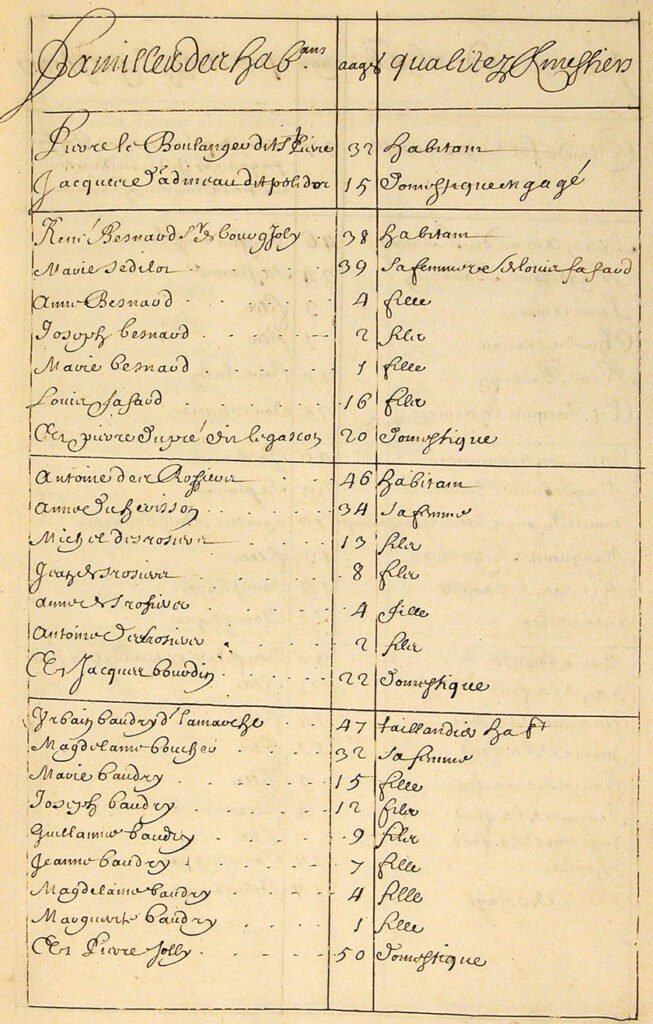 Familles des hab.ans aages qualitez & mestiers
Pierre le Boulanger dit St Pierre 32 habitant
Jacques dit polidor 15 Domestique engagé
René Besnard Sr de bourgjoly 38 habitant
Marie sedilot 39 sa femme
Anne Besnard 4 fille
Joseph besnard 2 filz
Marie besnard 1 fille
Louis fafard 16 filz
Et pierre dupré dit le gascon 20 Domestique
Antoine des Rosiers 46 habitant
Anne du herisson 34 sa femme
Michel desrosiers 13 filz
Jean desrosiers 8 filz
anne desrosiers 4 fille
Antoine desrosiers 2 filz
Et Jacques bourdin 22 Domestique
Urbain baudry d' lamarche 47 taillandier habt
Magdelaine boucher 32 sa femme
Marie baudry 15 fille
Joseph baudry 12 filz
Guillaume baudry 9 filz
Jeanne baudry 7 fille
Magdelaine baudry 4 fille
Marguerite baudry 1 fille
Et Pierre Jolly 50 Domestique